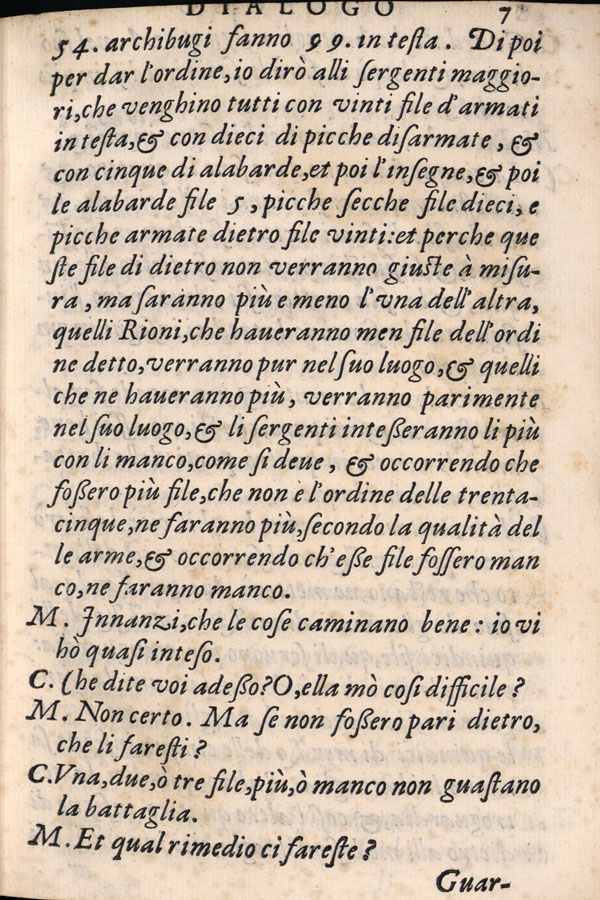 DIALOGO 7
54. archibugi fanno 99. in testa. Di poi
per dar l'ordine, io dirò alli sergenti maggio-
ri, che venghino tutti con vinti file d'armati
in testa, & con dieci di picche disarmate, &
con cinque di alabarde, et poi l'insegne, & poi
le alabarde file 5, picche secche file dieci, e
picche armate dietro file vinti: et perche que
ste file di dietro non verranno giuste à misu-
ra, ma saranno più e meno l'vna dell'altra,
quelli Rioni, che haueranno men file dell'ordi
ne detto, verranno pur nel suo luogo, & quelli
che ne haueranno più, verranno parimente
nel suo luogo, & li sergenti inteßeranno li più
con li manco, come si deue, & occorrendo che
foßero più file, che non è l'ordine delle trenta-
cinque, ne faranno più, secondo la qualità del
le arme, & occorrendo ch'eße file fossero man
co, ne faranno manco.
M. Innanzi, che le cose caminano bene: io vi
hò quasi inteso.
C. Che dite voi adeßo? O, ella mò cosi difficile?
M. Non certo. Ma se non foßero pari dietro,
che li faresti?
C. Vna, due, ò tre file, più, ò manco non guastano
la battaglia.
M. Et qual rimedio ci fareste?
Guar-